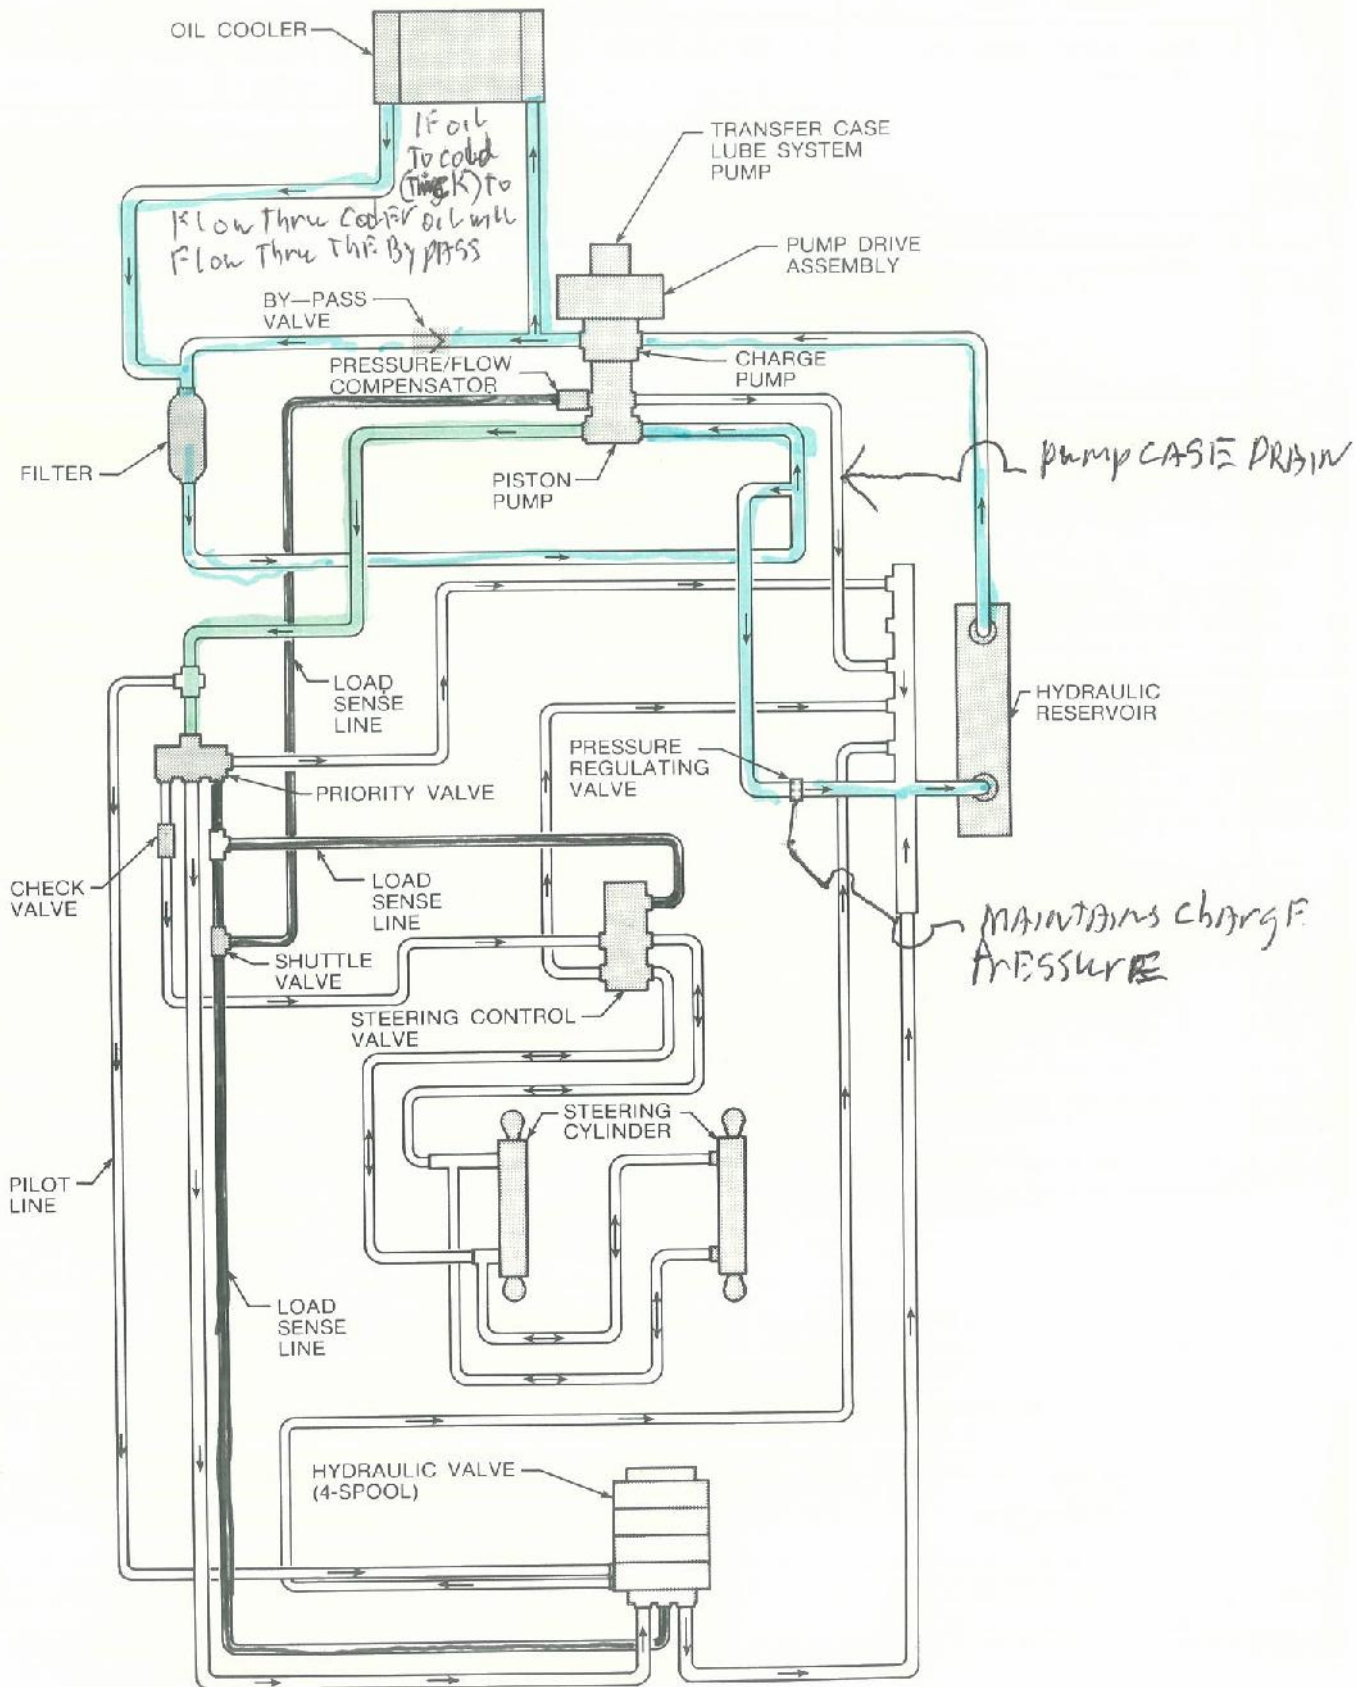 OIL COOLER
IF oil
To cold
(ThicK) to
Flow Thru CooLEr oil will
Flow Thru THE By pASS
TRANSFER CASE
LUBE SYSTEM
PUMP
PUMP DRIVE
ASSEMBLY
BY—PASS
VALVE
PRESSURE/FLOW
COMPENSATOR
CHARGE
PUMP
FILTER
PISTON
PUMP
pump CASE DRAIN
LOAD
SENSE
LINE
HYDRAULIC
RESERVOIR
PRESSURE
REGULATING
VALVE
PRIORITY VALVE
CHECK
VALVE
LOAD
SENSE
LINE
MAINTAINS ChArgE
PrESSurE
SHUTTLE
VALVE
STEERING CONTROL
VALVE
STEERING
CYLINDER
PILOT
LINE
LOAD
SENSE
LINE
HYDRAULIC VALVE
(4-SPOOL)